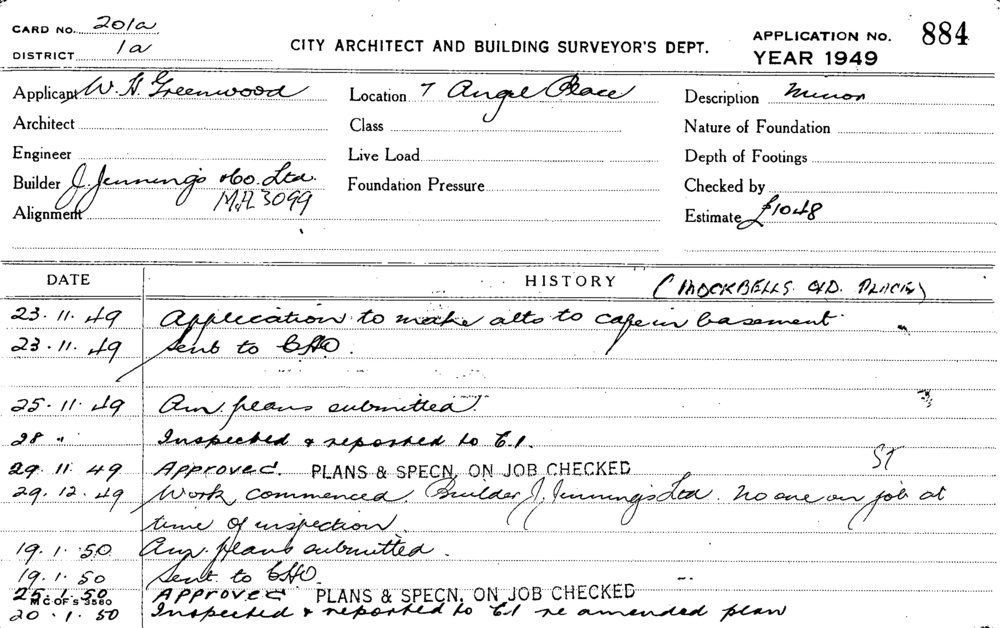 CARD NO. 201a
DISTRICT 1a
CITY ARCHITECT AND BUILDING SURVEYOR'S DEPT.
APPLICATION NO. 884
YEAR 1949
Applicant W. H. Greenwood
Location 7 Angel Place
Description Minor
Architect
Class
Nature of Foundation
Engineer
Live Load
Depth of Footings
Builder J. Jennings &Co. Ltd.
Foundation Pressure
Checked by
MA 3099
Alignment
Estimate £1048
DATE
HISTORY (MOCKBELLS OLD PLACE)
23.11.49 Application to make alts to cafe in basement
23.11.49 Sent to CHO.
25.11.49 Am. plans submitted.
28 " Inspected & reported to C.I.
29.11.49 Approved. PLANS & SPECN, ON JOB CHECKED ST
29.12.49 Work commenced Builder J. Jennings Ltd. No one on job at
time of inspection.
19.1.50 Am. plans submitted.
19.1.50 Sent to CHO.
25.1.50 Approved PLANS & SPECN, ON JOB CHECKED
M C OF S 3560
20.1.50 Inspected & reported to C.I re amended plan